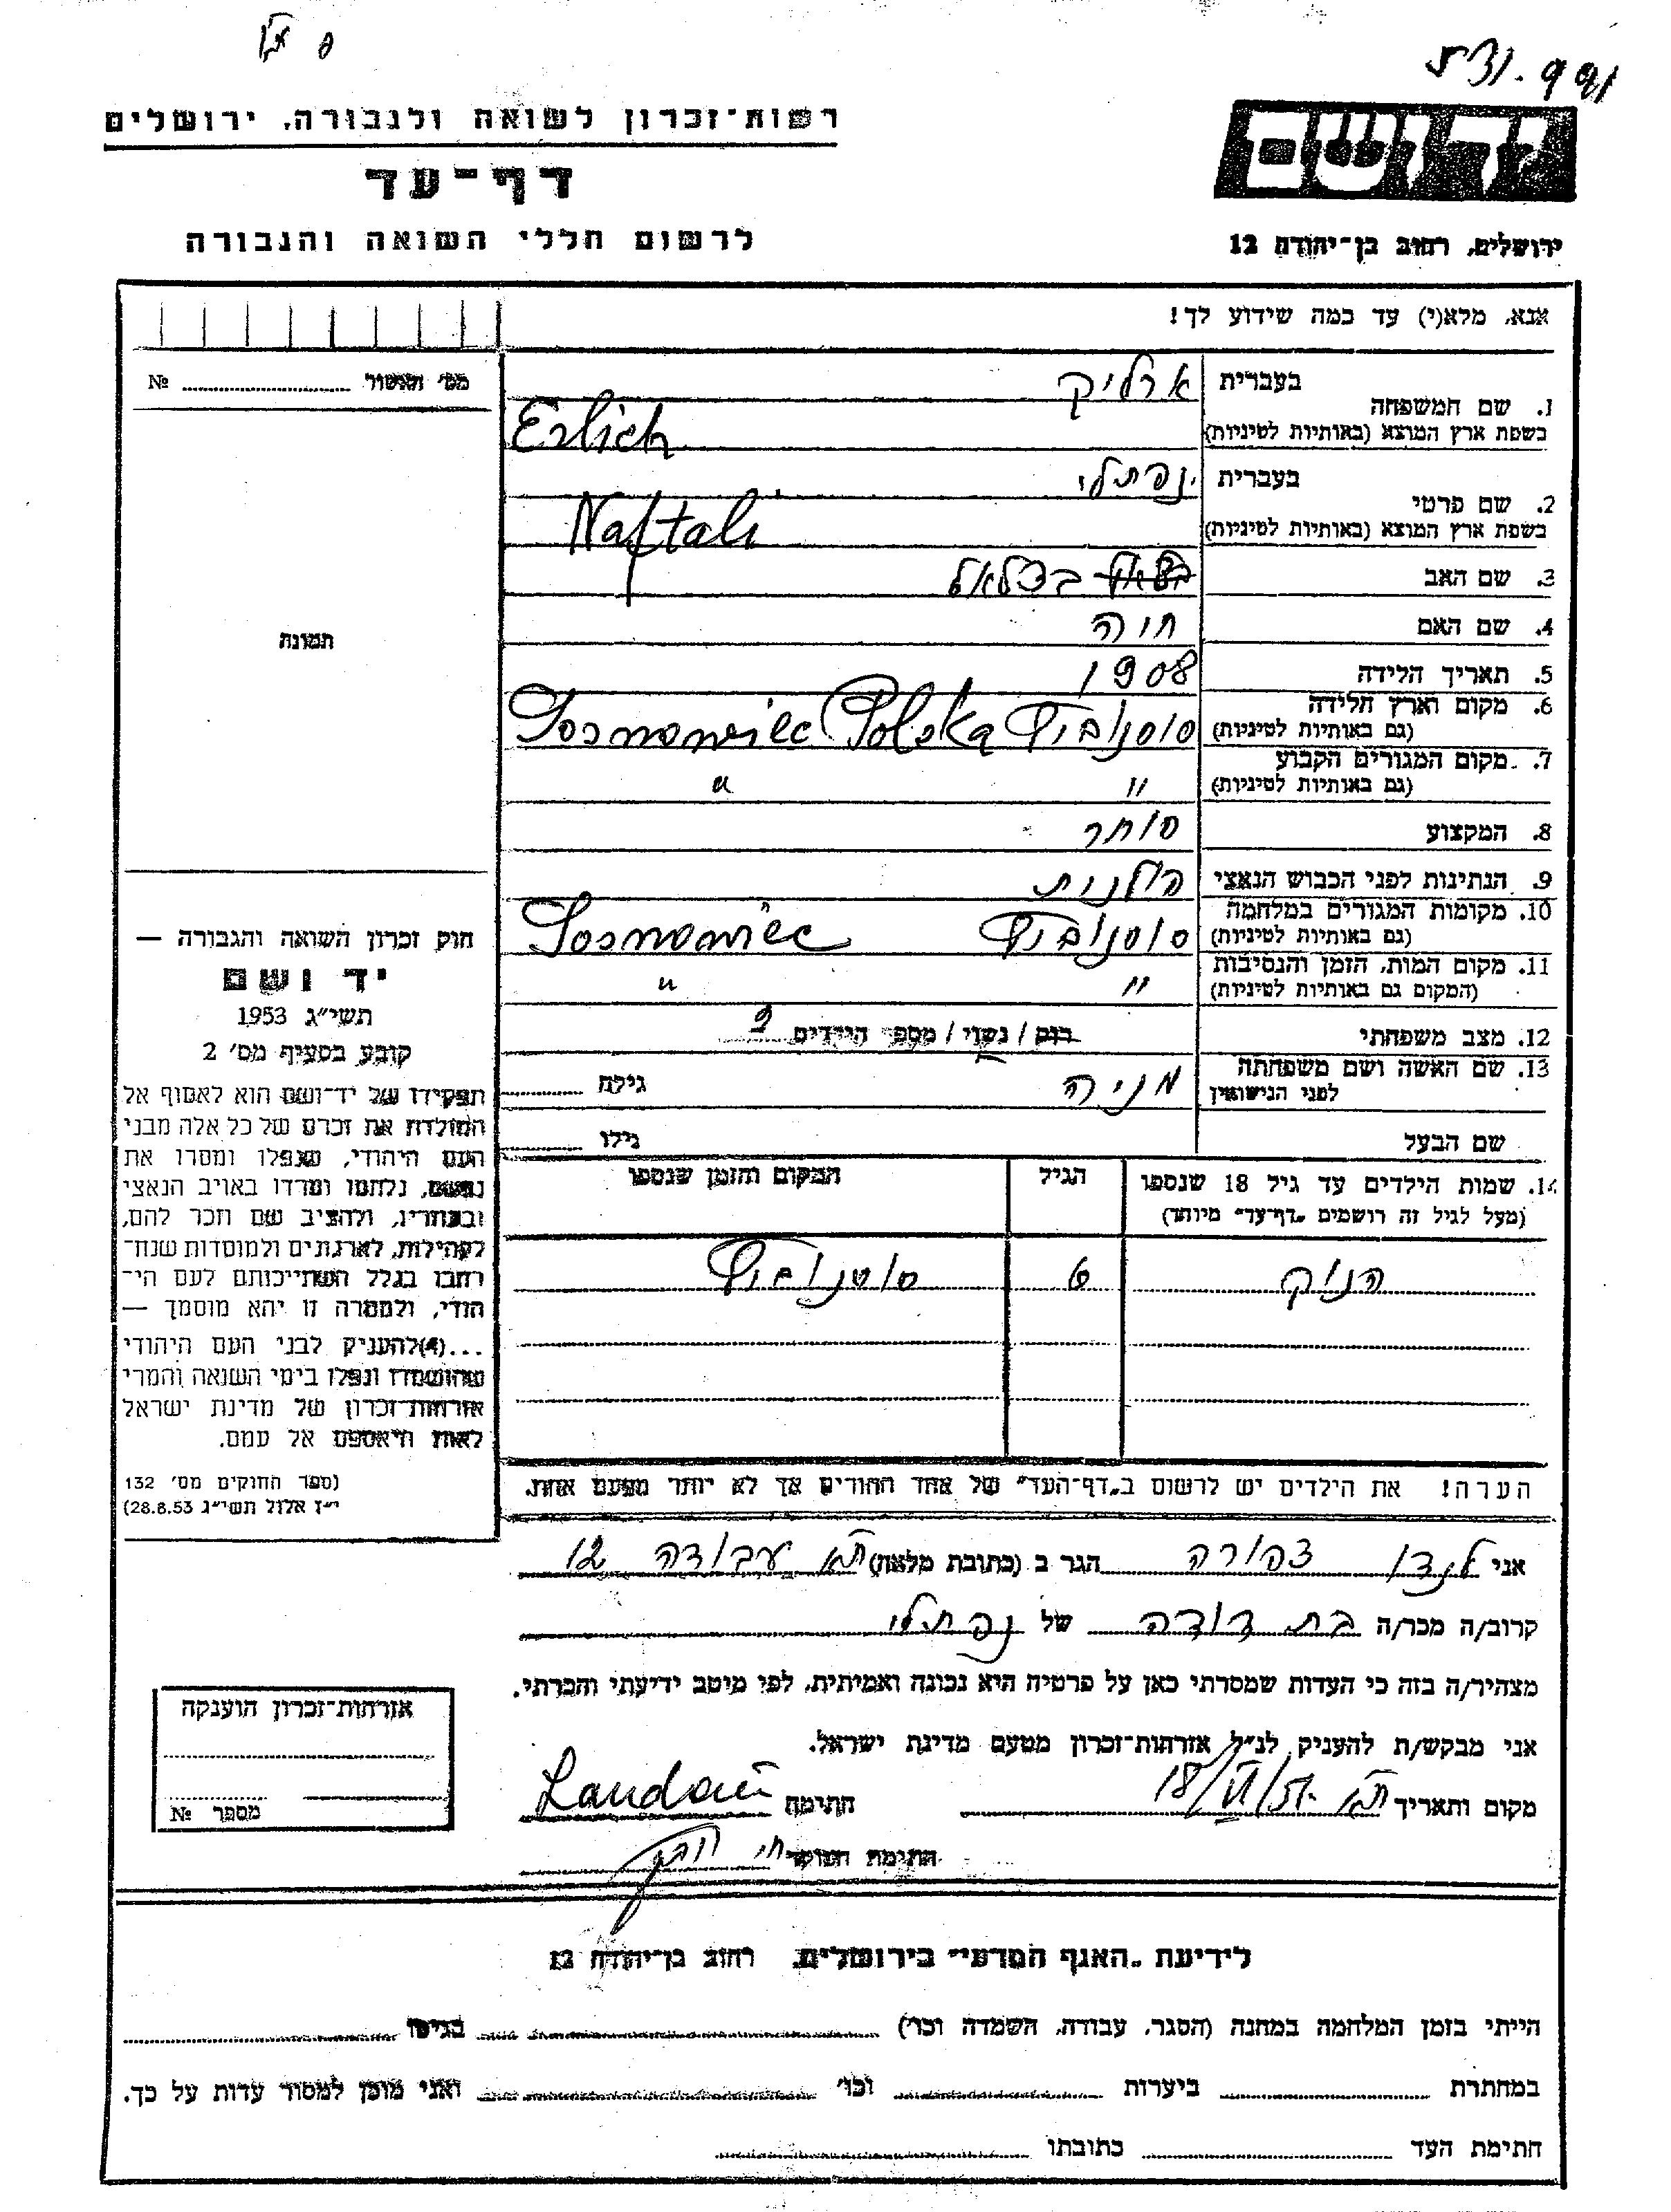 רשות־זכרון לשואה ולגבורה, ירושלים
דף־עד
לרשום חללי השואה והגבורה
ידושם
ירושלים, רחוב בן־יהודה 12
אנא, מלא(י) עד כמה שידוע לך!
מס׳ האשור № 
1. שם המשפחה בעברית ארליק
בשפת ארץ המוצא (באותיות לטיניות) Erlich
2. שם פרטי בעברית נפתלי
בשפת ארץ המוצא (באותיות לטיניות) Naftali
3. שם האב בצלאל
4. שם האם חוה
5. תאריך הלידה 1908
6. מקום וארץ הלידה (גם באותיות לטיניות) סוסנוביץ Sosnowiec Polska
7. מקום המגורים הקבוע (גם באותיות לטיניות) " "
8. המקצוע סוחר
9. הנתינות לפני הכבוש הנאצי פולנית
10. מקומות המגורים במלחמה (גם באותיות לטיניות) סוסנוביץ Sosnowiec
11. מקום המות, הזמן והנסיבות (המקום גם באותיות לטיניות) " "
12. מצב משפחתי רווק / נשוי / מספר הילדים
13. שם האשה ושם משפחתה לפני הנישואין מניה גילה
שם הבעל גילו
14. שמות הילדים עד גיל 18 שנספו (מעל לגיל זה רושמים „דף־עד" מיוחד) הגיל המקום והזמן שנספו
הנוק 6 סוסנוביץ
הערה! את הילדים יש לרשום ב„דף־העד" של אחד ההורים אך לא יותר מפעם אחת.
תמונה
חוק זכרון השואה והגבורה —
יד ושם
תשי״ג 1953
קובע בסעיף מס׳ 2
תפקידו של יד־ושם הוא לאסוף אל
המולדת את זכרם של כל אלה מבני
העם היהודי, שנפלו ומסרו את
נפשם, נלחמו ומרדו באויב הנאצי
ובעוזריו, ולהציב שם וזכר להם,
לקהילות, לארגונים ולמוסדות שנח־
רבו בגלל השתייכותם לעם הי־
הודי, ולמטרה זו יהא מוסמך —
...(4) להעניק לבני העם היהודי
שהושמדו ונפלו בימי השואה והמרי
אזרחות־זכרון של מדינת ישראל
לאות היאספם אל עמם.
(ספר החוקים מס׳ 132
י״ז אלול תשי״ג 28.8.53)
אני לנדו צפורה הגר ב (כתובת מלאה) ת״א עבודה 12
קרוב/ה מכר/ה בת דודה של נפתלי
מצהיר/ה בזה כי העדות שמסרתי כאן על פרטיה היא נכונה ואמיתית, לפי מיטב ידיעתי והכרתי.
אני מבקש/ת להעניק לנ״ל אזרחות־זכרון מטעם מדינת ישראל.
מקום ותאריך ת״א חתימה Landau
חתימת הפוקד
אזרחות־זכרון הוענקה
מספר №
לידיעת „האגף המדעי" בירושלים, רחוב בן־יהודה 12
הייתי בזמן המלחמה במחנה (הסגר, עבודה, השמדה וכו׳) בגיטו
במחתרת ביערות וכו׳ ואני מוכן למסור עדות על כך.
חתימת העד כתובתו